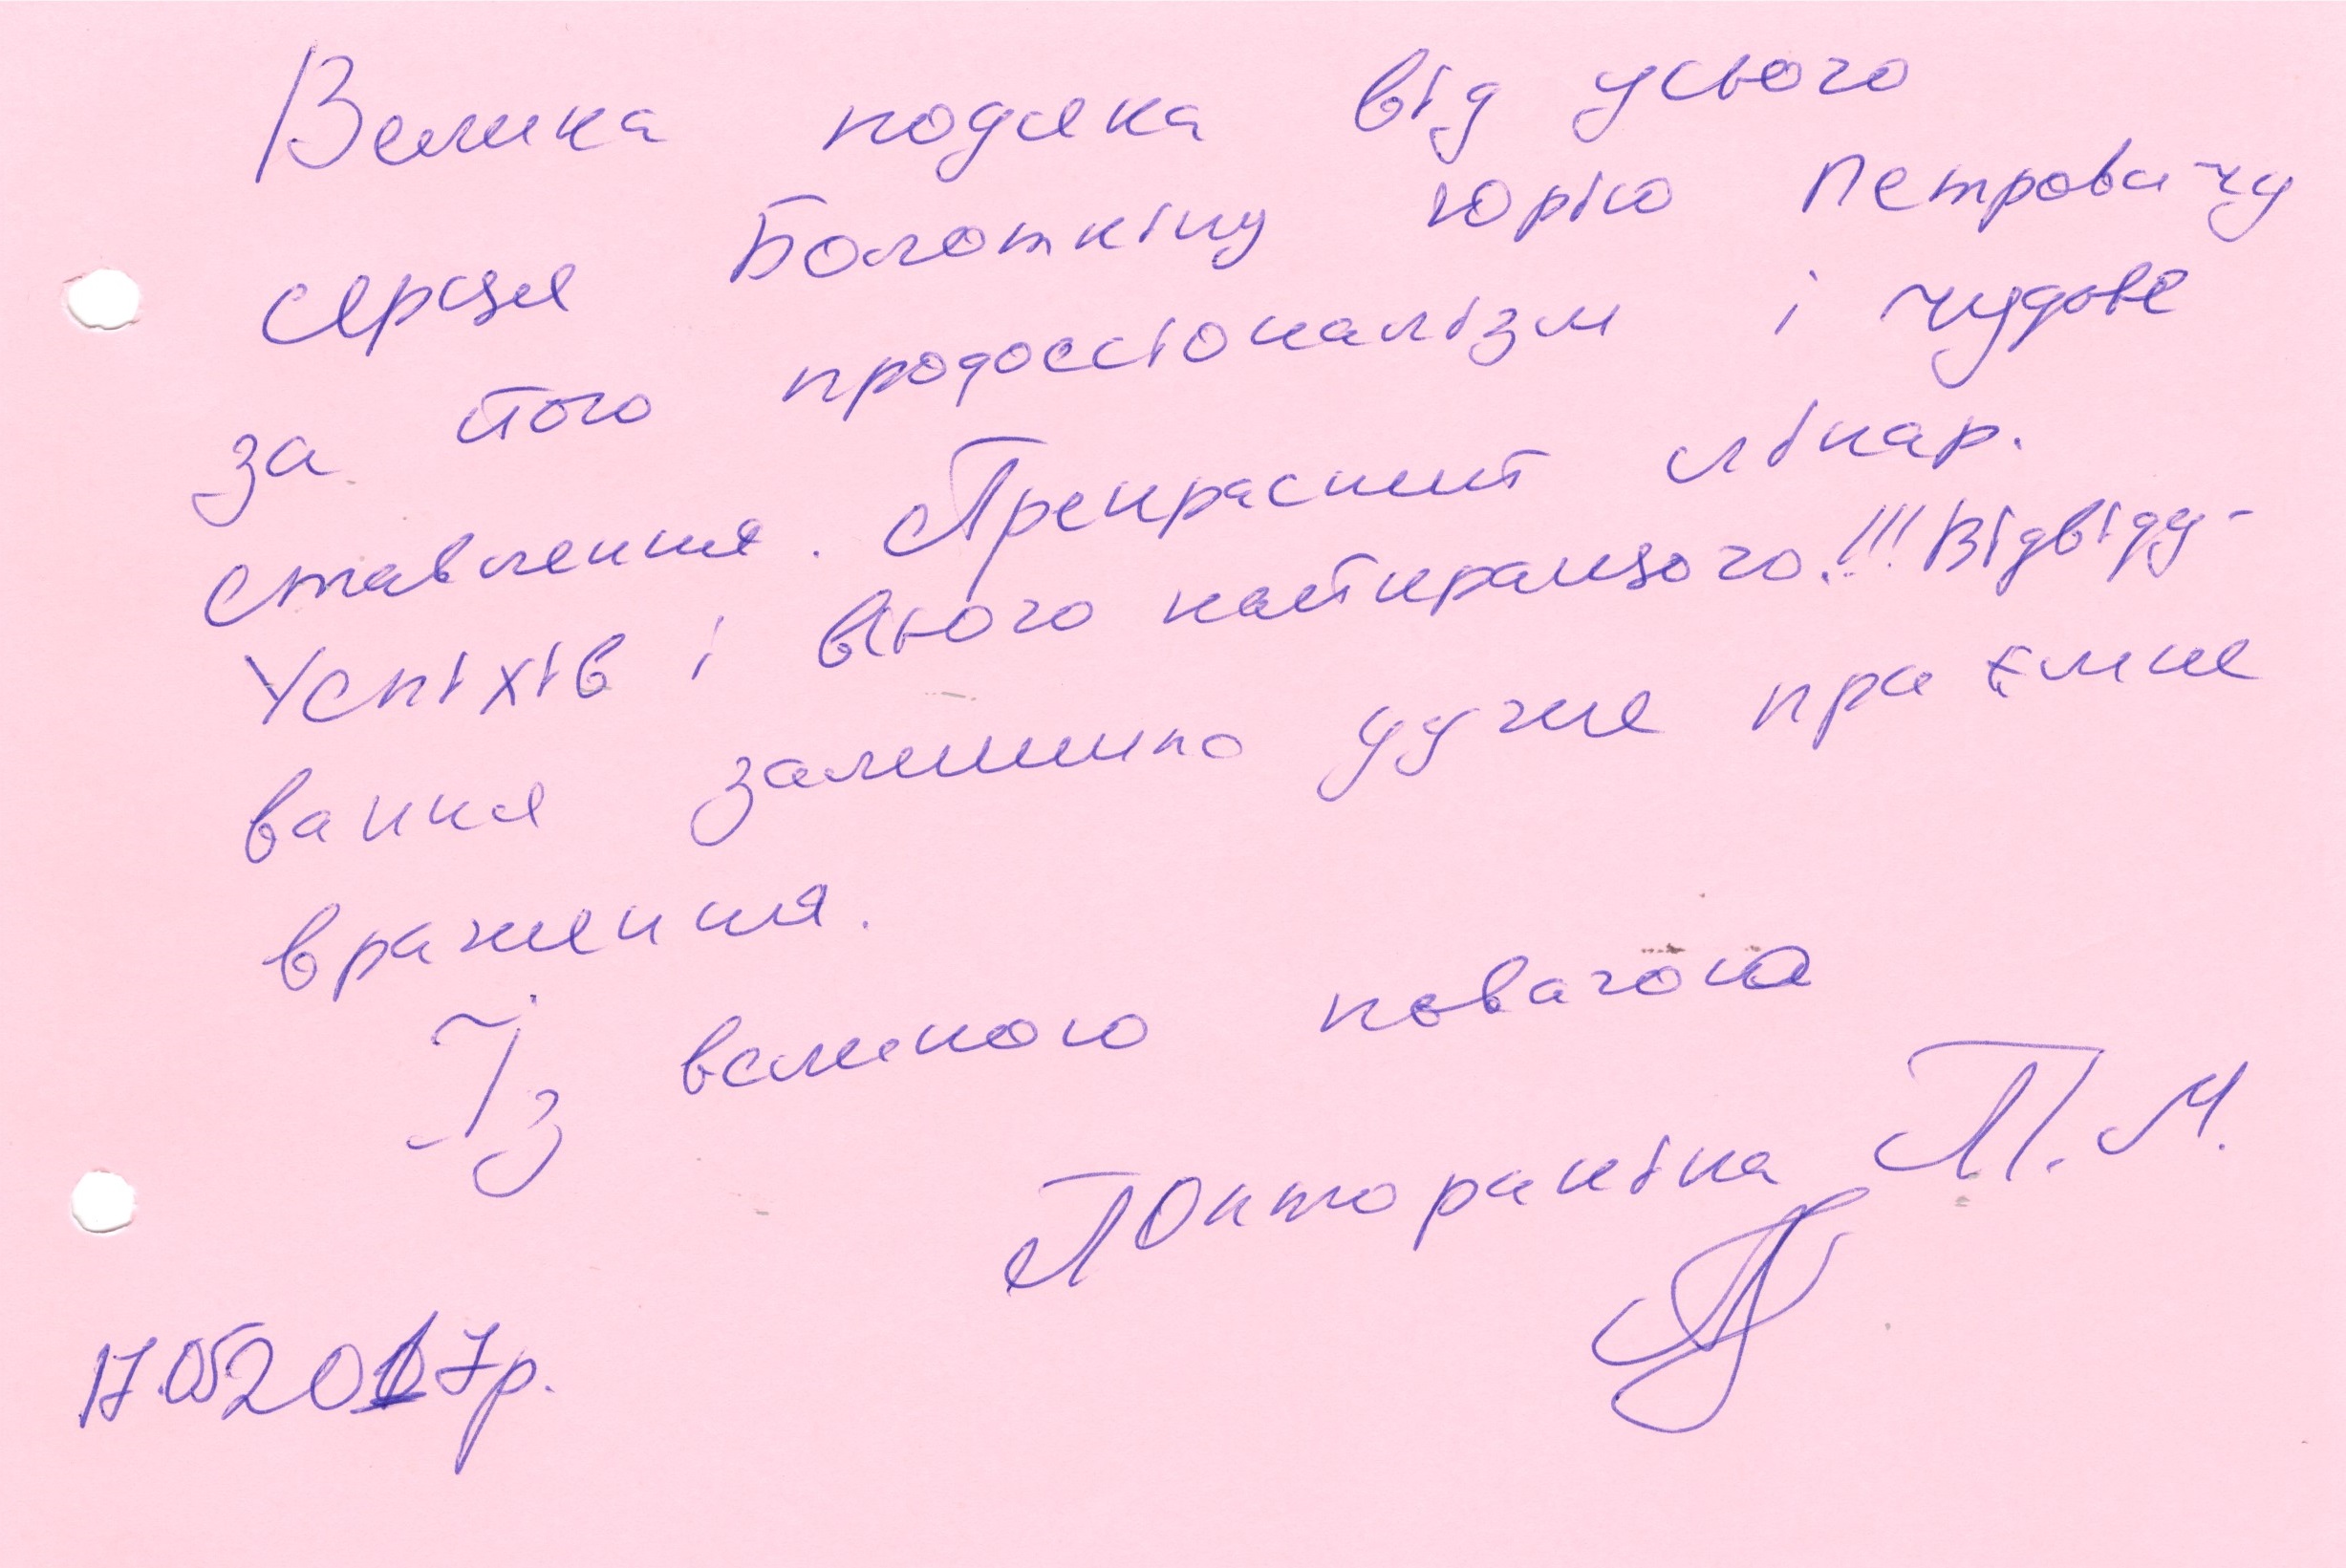 Велика подяка від усього
серця Болоткіну Юрію Петровичу
за його професіоналізм і чудове
ставлення. Прекрасний лікар.
Успіхів і всього найкращого!!! Відвіду-
вання залишило дуже приємне
враження.
Із великою повагою
П. М.
17.05 2017р.